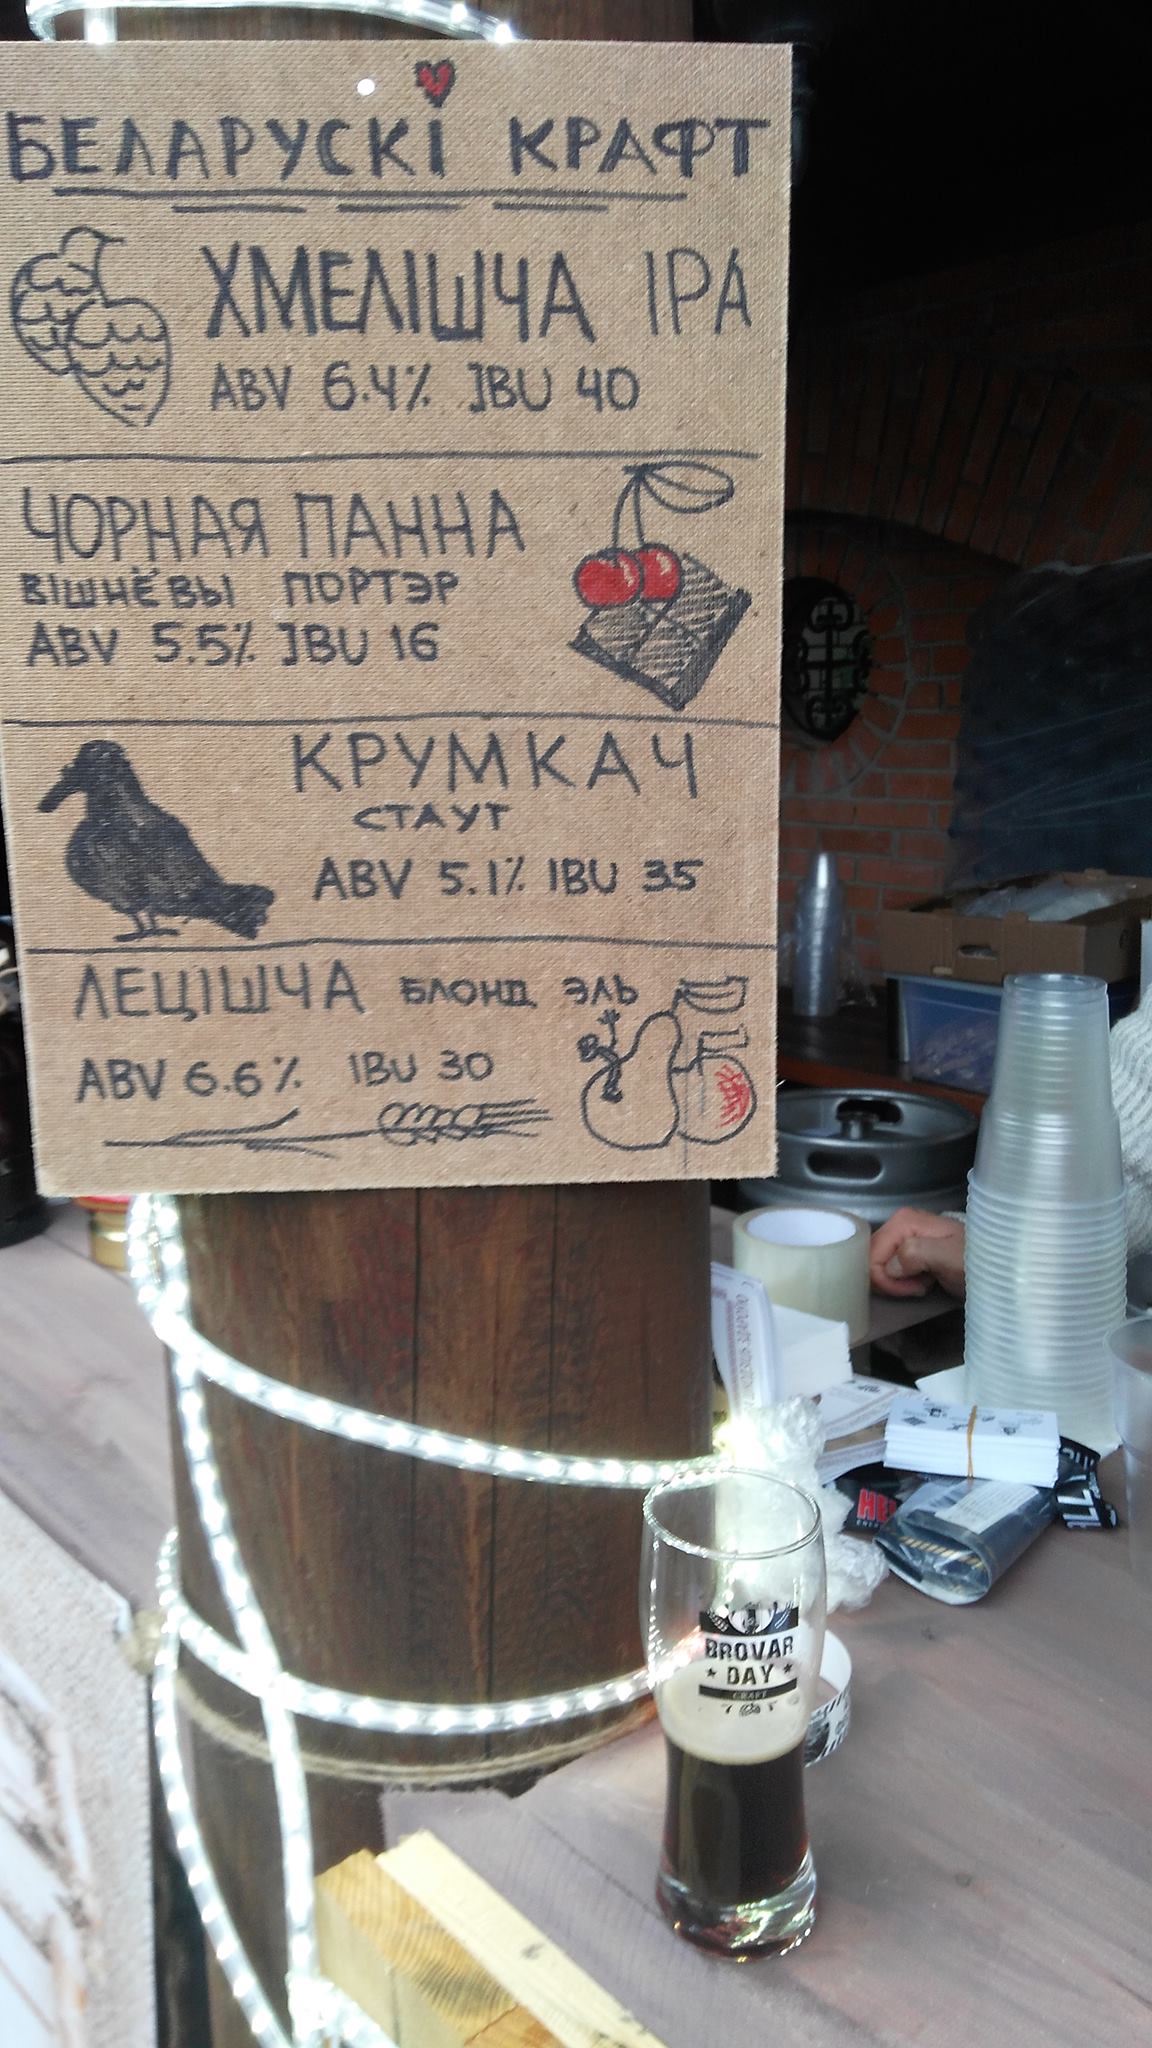 БЕЛАРУСКІ КРАФТ
ХМЕЛІШЧА IPA
ABV 6.4% IBU 40
ЧОРНАЯ ПАННА
ВІШНЁВЫ ПОРТЭР
ABV 5.5% IBU 16
КРУМКАЧ
СТАУТ
ABV 5.1% IBU 35
ЛЕЦІШЧА БЛОНД ЭЛЬ
ABV 6.6% IBU 30
BROVAR
DAY
CRAFT